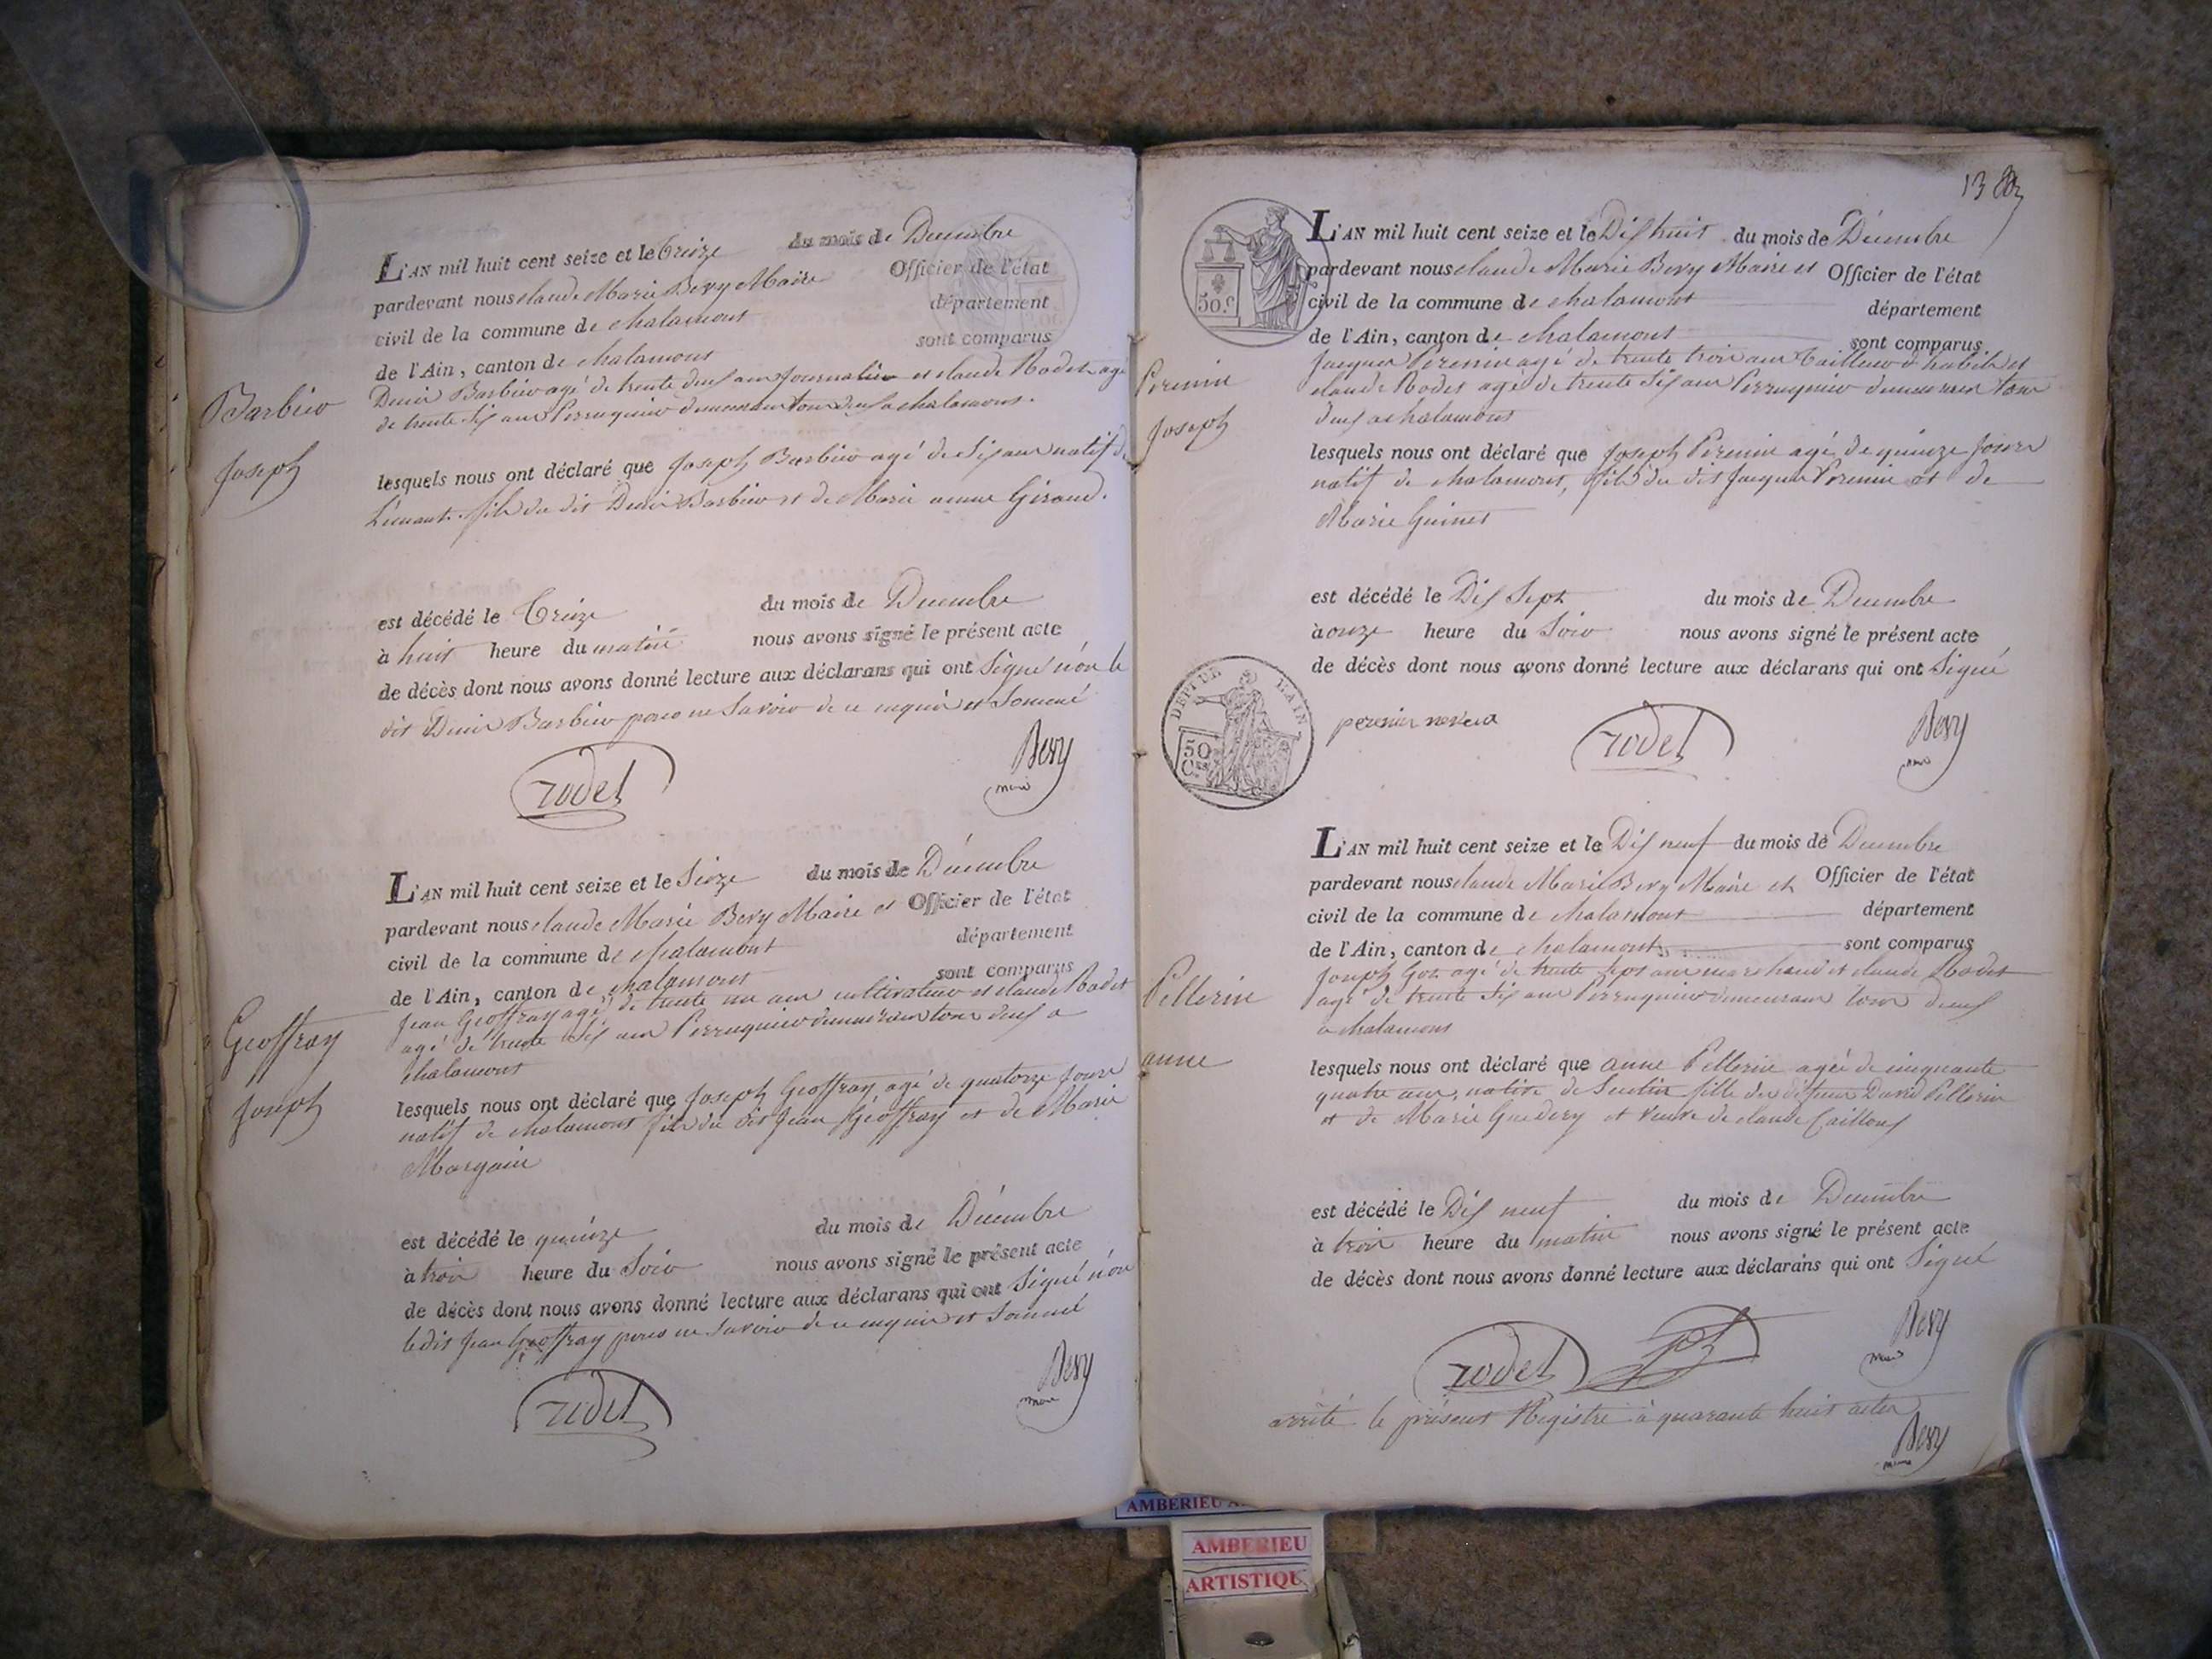 L'AN mil huit cent seize et le Treize du mois de Decembre
pardevant nous claude Marie Bevy Maire Officier de l'état
civil de la commune de chalamont département
de l'Ain, canton de chalamont sont comparus
Denis Barbier agé de trente deux ans Journalier et claude Rodet agé
de trente six ans Perruquier demeurant tous deux a chalamont.
Barbier
Joseph
lesquels nous ont déclaré que Joseph Barbier agé de six ans natif de
fils du dit Denis Barbier et de Marie anne Giraud.
est décédé le Treize du mois de Decembre
à huit heure du matin nous avons signé le présent acte
de décès dont nous avons donné lecture aux déclarans qui ont Signé non le
dit Denis Barbier pour ne savoir de ce enquis et sommé
rodet
Bevy
maire
L'AN mil huit cent seize et le Seize du mois de Décembre
pardevant nous claude Marie Bevy Maire et Officier de l'état
civil de la commune de chalamont département
de l'Ain, canton de chalamont sont comparus
Jean Geoffray agé de trente un ans cultivateur et claude Rodet
agé de trente six ans Perruquier demeurant tous deux a
chalamont
Geoffray
Joseph
lesquels nous ont déclaré que Joseph Geoffray agé de quatorze jours
natif de chalamont fils du dit Jean Géoffray et de Marie
Margain
est décédé le quinze du mois de Décembre
à trois heure du Soir nous avons signé le présent acte
de décès dont nous avons donné lecture aux déclarans qui ont Signé non
le dit Jean Geoffray pour ne savoir de ce enquis et sommé
rodet
Bevy
maire
138
L'AN mil huit cent seize et le Dix huit du mois de Décembre
pardevant nous claude Marie Bevy Maire et Officier de l'état
civil de la commune de chalamont département
de l'Ain, canton de chalamont sont comparus
Jacques Perenin agé de trente trois ans Tailleur d'habits et
claude Rodet agé de trente six ans Perruquier demeurant tous
deux a chalamont
50.c
Perenin
Joseph
lesquels nous ont déclaré que Joseph Perenin agé de quinze jours
natif de chalamont, fils du dit Jacques Perenin et de
Marie Guinet
est décédé le Dix Sept du mois de Decembre
à onze heure du Soir nous avons signé le présent acte
de décès dont nous avons donné lecture aux déclarans qui ont Signé
DEPT DE L'AIN
50
Cmes
perenin
rodet
Bevy
maire
L'AN mil huit cent seize et le Dix neuf du mois de Decembre
pardevant nous claude Marie Bevy Maire et Officier de l'état
civil de la commune de chalamont département
de l'Ain, canton de chalamont sont comparus
Joseph Got agé de trente sept ans marchand et claude Rodet
agé de trente six ans Perruquier demeurant tous deux
a chalamont
Pellerin
anne
lesquels nous ont déclaré que anne Pellerin agée de cinquante
quatre ans, native de fille du défunt David Pellerin
et de Marie Guedery et veuve de claude Cailloux
est décédé le Dix neuf du mois de Decembre
à trois heure du matin nous avons signé le présent acte
de décès dont nous avons donné lecture aux déclarans qui ont Signé
rodet
Bevy
maire
arrêté le présent Régistre à quarante huit actes
Bevy
maire
AMBERIEU
AMBERIEU
ARTISTIQU